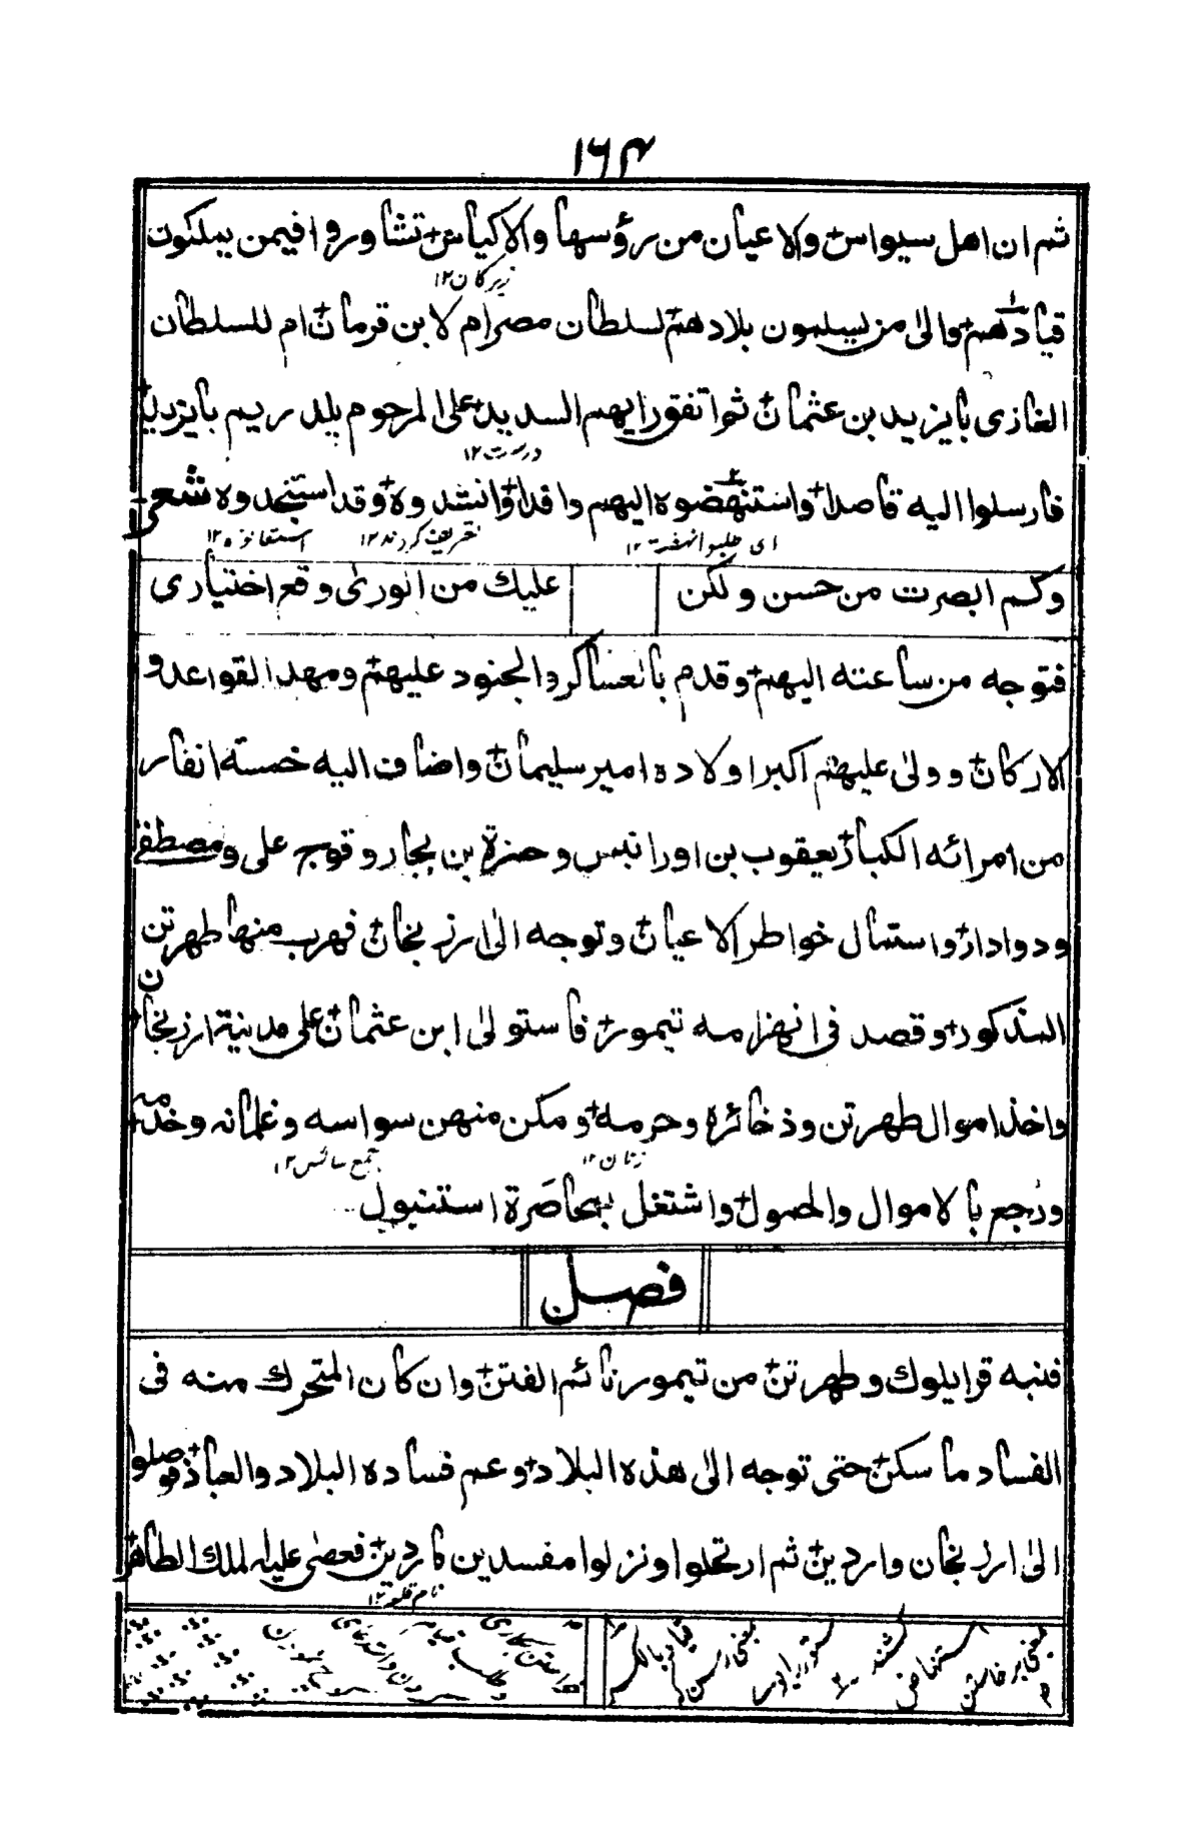 ١٦٤
ثم ان اهل سيواس والاعيان من رؤسها والاكياس تشاوروا فيمن يملكون
زيركان ١٢
قيادهم والى من يسلمون بلادهم لسلطان مصر ام لابن قرمان ام للسلطان
الغازى بايزيد بن عثمان ثم اتفق رايهم السديد على المرحوم يلدريم بايزيد
درست ١٢
فارسلوا اليه قاصدا واستنهضوه اليهم وافدا وانشدوه وقد استنجدوه شعر
اى طلبوا نهضته ١٢
وكم ابصرت من حسن ولكن عليك من الورى وقع اختيارى
فتوجه من ساعته اليهم وقدم بالعساكر والجنود عليهم ومهد القواعد و
الاركان وولى عليهم اكبر اولاده امير سليمان واضاف اليه خمسة انفار
من امرائه الكبار يعقوب بن اورانبس وحمزة بن بجار وقوج على ومصطفى
ودوادار واستمال خواطر الاعيان وتوجه الى ارزنجان فهرب منها طهرتن
المذكور وقصد فى انهزامه تيمور فاستولى ابن عثمان على مدينة ارزنجان
واخذ اموال طهرتن وذخائره وحرمه ومكن منهن سواسه وغلمانه وخدمه
زنان ١٢ جمع سائس ١٢
ورجع بالاموال والحمول واشتغل بمحاصرة استنبول
فصل
فنبه قرايلوك وطهرتن من تيمور نائم الفتن وان كان المتحرك منه فى
الفساد ما سكن حتى توجه الى هذه البلاد وعم فساده البلاد والعباد فوصلوا
الى ارزنجان واردين ثم ارتحلوا ونزلوا مفسدين ماردين فعصى عليه الملك الطاهر
نام قلعه ١٢